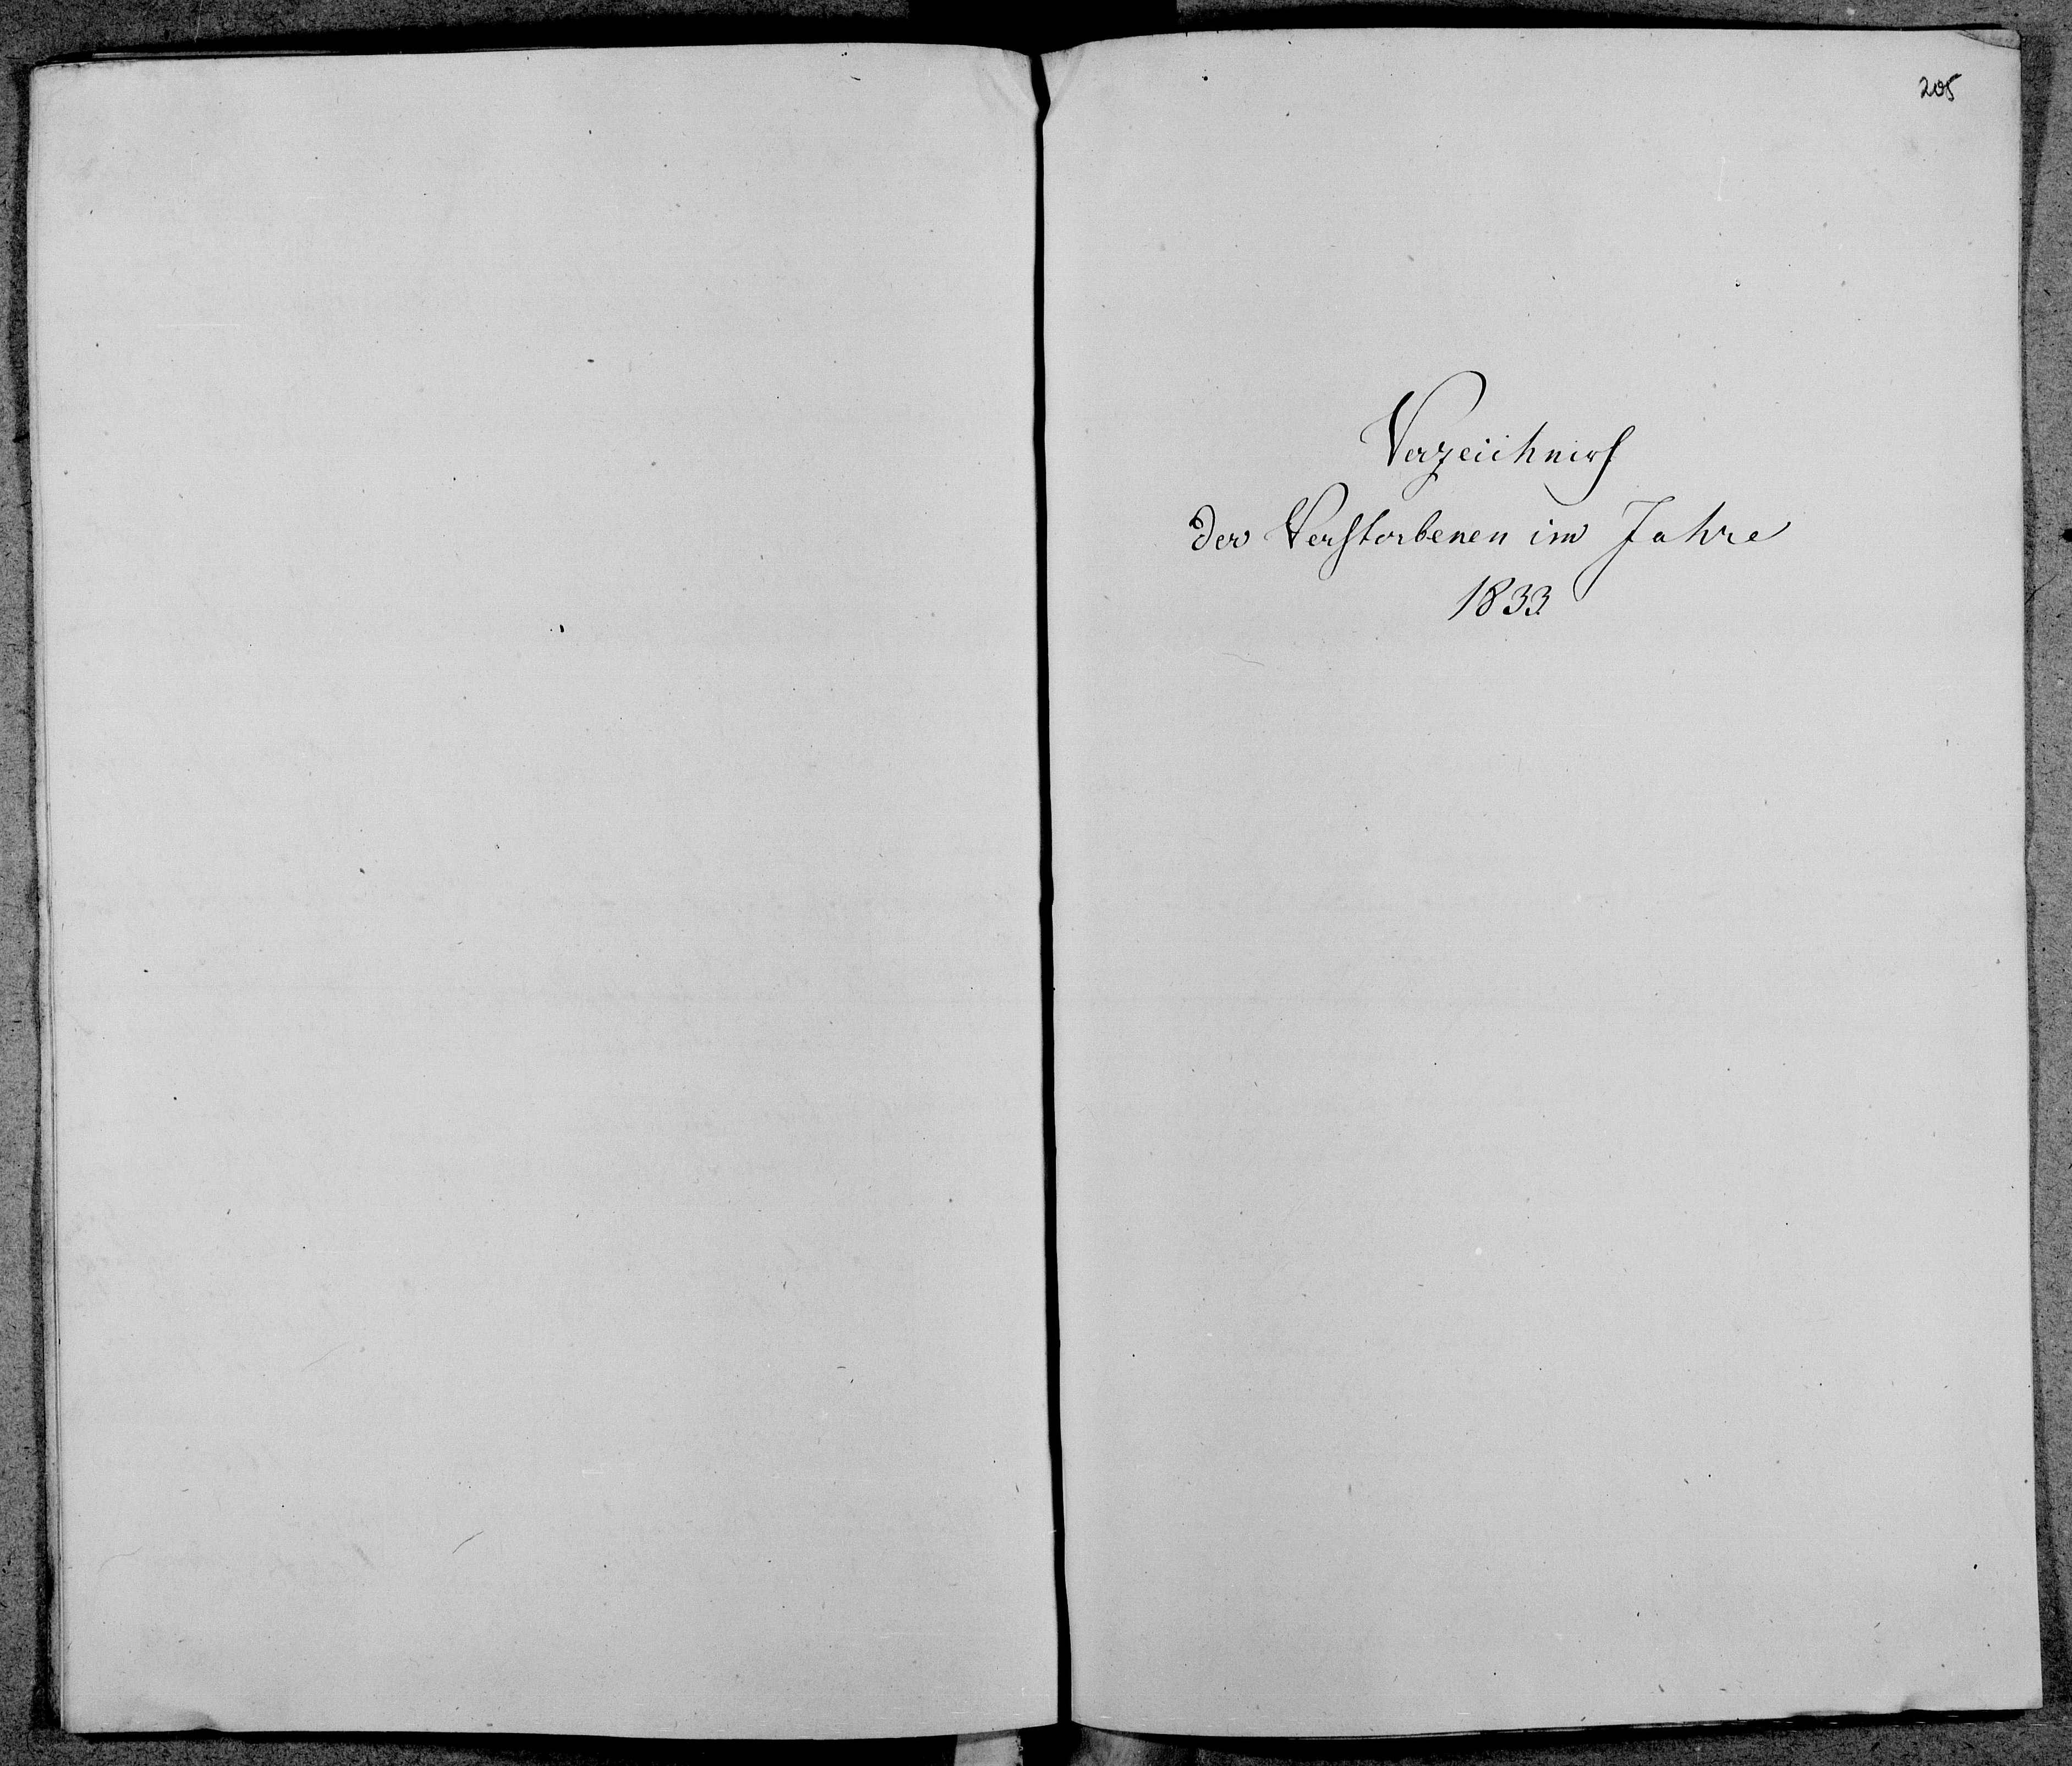 205
Verzeichniss
der Verstorbenen im Jahre
1833